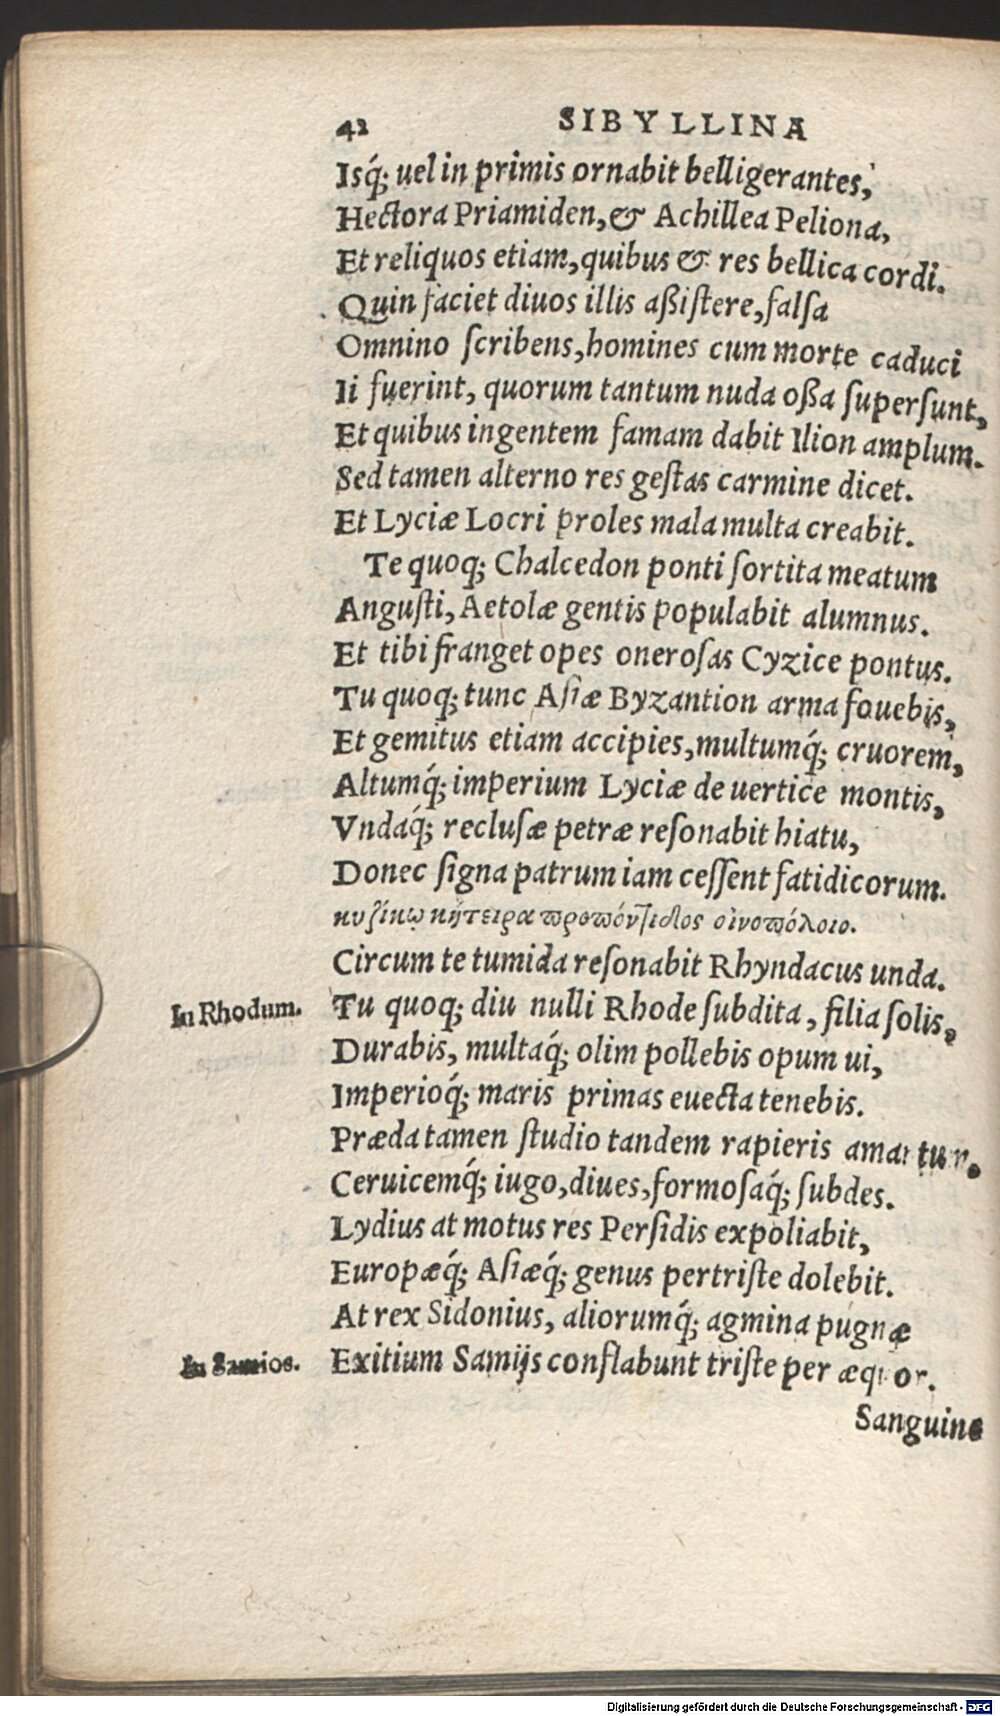 42 SIBYLLINA
Isq́; uel in primis ornabit belligerantes,
Hectora Priamiden, & Achillea Peliona,
Et reliquos etiam, quibus & res bellica cordi.
Quin faciet diuos illis aßiſtere, falſa
Omnino ſcribens, homines cum morte caduci
Ii fuerint, quorum tantum nuda oßa ſuperſunt,
Et quibus ingentem famam dabit Ilion amplum.
Sed tamen alterno res geſtas carmine dicet.
Et Lyciæ Locri proles mala multa creabit.
Te quoq; Chalcedon ponti ſortita meatum
Anguſti, Aetolæ gentis populabit alumnus.
Et tibi franget opes oneroſas Cyzice pontus.
Tu quoq; tunc Aſiæ Byzantion arma fouebis,
Et gemitus etiam accipies, multumq́; cruorem,
Altumq́; imperium Lyciæ de uertice montis,
Vndaq́; recluſæ petræ reſonabit hiatu,
Donec ſigna patrum iam ceſſent fatidicorum.
κυζίκῳ κἤτειρα προπόντιδος οἰνοπόλοιο.
Circum te tumida reſonabit Rhyndacus unda.
In Rhodum. Tu quoq; diu nulli Rhode ſubdita, filia ſolis,
Durabis, multaq́; olim pollebis opum ui,
Imperioq́; maris primas euecta tenebis.
Præda tamen ſtudio tandem rapieris amantum.
Ceruicemq́; iugo, diues, formoſaq́; ſubdes.
Lydius at motus res Perſidis expoliabit,
Europæq́; Aſiæq́; genus pertriſte dolebit.
At rex Sidonius, aliorumq́; agmina pugnæ
In Samios. Exitium Samijs conflabunt triſte per æquor.
Sanguine
Digitalisierung gefördert durch die Deutsche Forschungsgemeinschaft - DFG